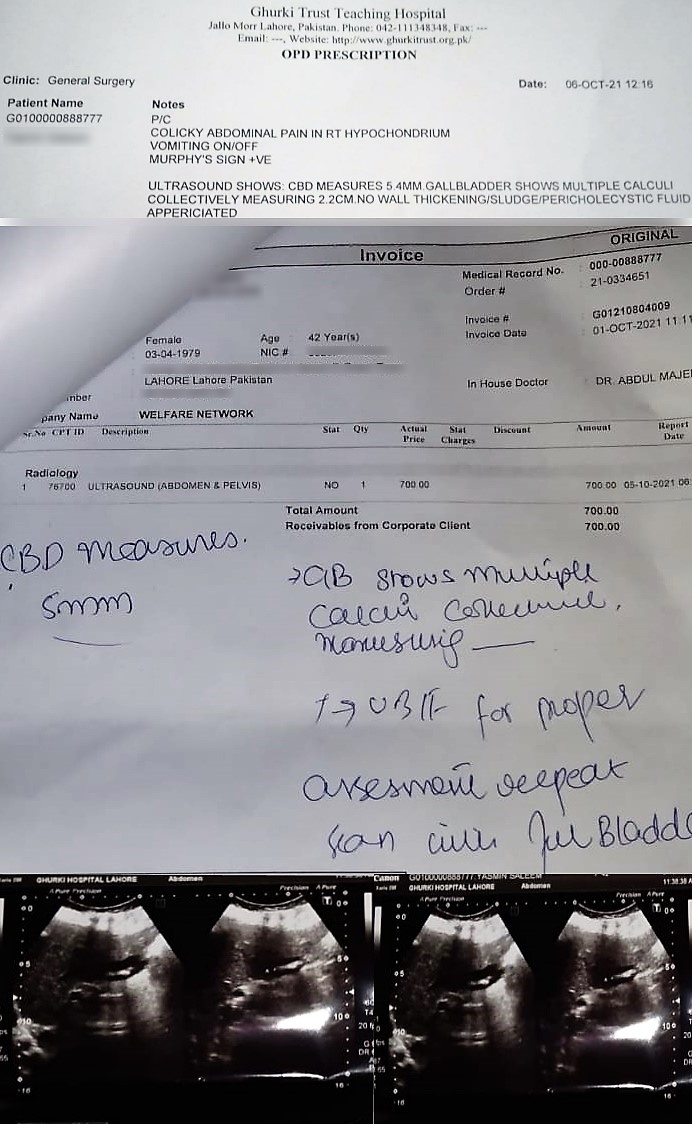 Ghurki Trust Teaching Hospital
Jallo Morr Lahore, Pakistan, Phone: 042-111348348, Fax: ---
Email: ---, Website: http://www.ghurkitrust.org.pk/
OPD PRESCRIPTION
Clinic: General Surgery
Date: 06-OCT-21 12:16
Patient Name
G0100000888777
Notes
P/C
COLICKY ABDOMINAL PAIN IN RT HYPOCHONDRIUM
VOMITING ON/OFF
MURPHY'S SIGN +VE
ULTRASOUND SHOWS: CBD MEASURES 5.4MM.GALLBLADDER SHOWS MULTIPLE CALCULI
COLLECTIVELY MEASURING 2.2CM.NO WALL THICKENING/SLUDGE/PERICHOLECYSTIC FLUID
APPERICIATED
ORIGINAL
Invoice
Medical Record No. : 000-00888777
Order # : 21-0334651
Invoice # : G01210804009
Invoice Date : 01-OCT-2021 11:11
Female Age : 42 Year(s)
03-04-1979 NIC # :
LAHORE Lahore Pakistan
In House Doctor : DR. ABDUL MAJE
mber
pany Name WELFARE NETWORK
Sr.No CPT ID Description Stat Qty Actual Price Stat Charges Discount Amount Report Date
Radiology
1 76700 ULTRASOUND (ABDOMEN & PELVIS) NO 1 700.00 700.00 05-10-2021 06
Total Amount 700.00
Receivables from Corporate Client 700.00
CBD measures.
5mm
→GB shows multiple
Calculi
for proper
assesment repeat
scan Bladde
GHURKI HOSPITAL LAHORE Abdomen
A Pure Precision
Precision A Pure
Canon G0100000888777 YASMIN SALEEM 11:38:38 A
GHURKI HOSPITAL LAHORE Abdomen
A Pure Precision
Precision A Pure